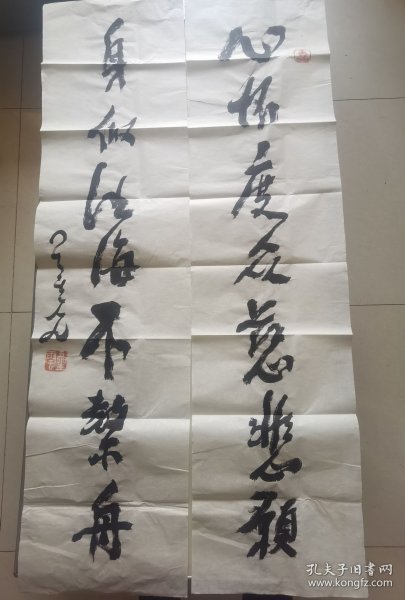 心怀度众慈悲愿
身似法海不繫舟
星云
孔夫子旧书网
www.kongfz.com